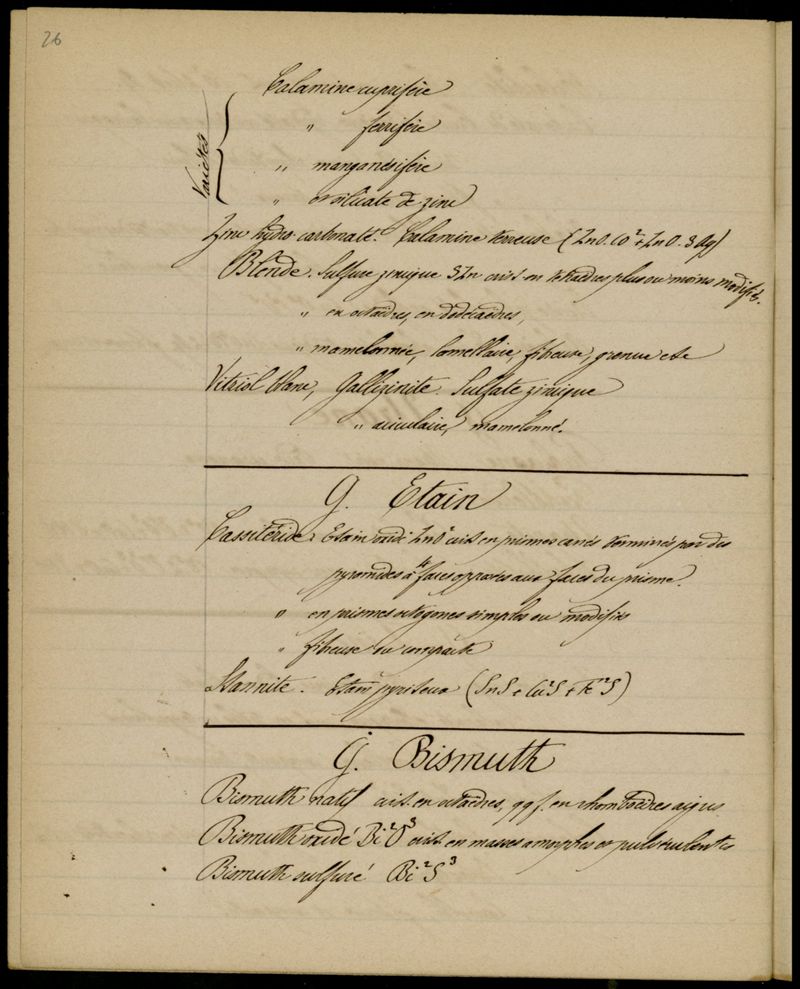 26
Variétés
Calamine cuprifère
" ferrifère
" manganésifère
" et silicate de zinc
Zinc hydro-carbonaté. Calamine terreuse (ZnO.Co²+ZnO.3Aq)
Blende. Sulfure zincique SZn crist. en tétraèdres plus ou moins modifiés.
" en octaèdres, en dodécaèdres,
" mamelonnée, lamellaire, fibreuse, grenue etc
Vitriol blanc, Gallizinite. Sulfate zincique
" aciculaire, mamelonné.
G. Etain
Cassitéride. Etain oxidé SnO² crist. en prismes carrés terminés par des
pyramides à 4 faces opposées aux faces du prisme.
" en prismes octogones simples ou modifiés
" fibreuse ou compacte
Stannite. Etain pyriteux (SnS + Cu²S + Fe²S)
G. Bismuth
Bismuth natif crist. en octaèdres, qqf. en rhomboèdres aigus
Bismuth oxidé Bi²O³ crist. en masses amorphes et pulvérulentes
Bismuth sulfuré Bi²S³